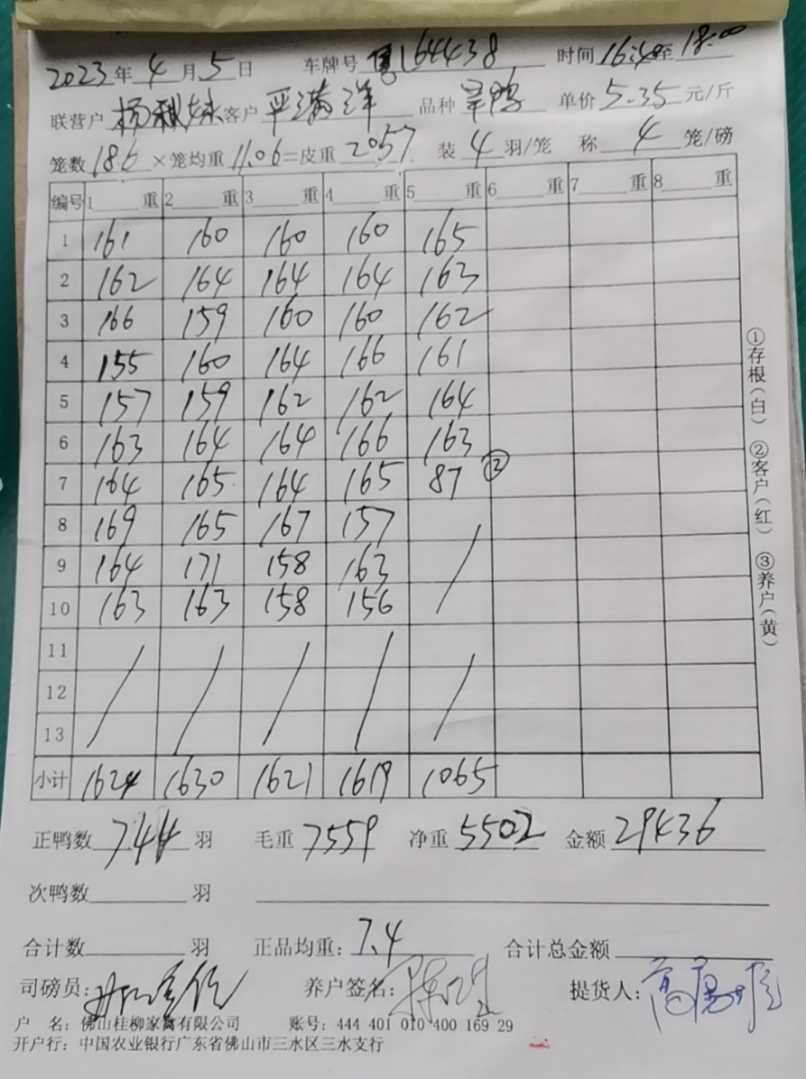 2023年4月5日 车牌号 粤L64438 时间16:40至18:00
联营户 杨秋妹 客户 平满洋 品种 羊鸭 单价5.35元/斤
笼数186×笼均重11.06=皮重2057 装4羽/笼 称4笼/磅
编号 1 重 2 重 3 重 4 重 5 重 6 重 7 重 8 重
1 161 160 160 160 165
2 162 164 164 164 163
3 166 159 160 160 162
4 155 160 164 166 161
5 157 159 162 162 164
6 163 164 164 166 163
7 164 165 164 165 87 ②
8 169 165 167 157
9 164 171 158 163 /
10 163 163 158 156
11
12 / / / / /
13
小计 1624 1630 1621 1619 1065
正鸭数744羽 毛重7559 净重5502 金额29436
次鸭数 羽
合计数 羽 正品均重:7.4 合计总金额
司磅员: 养户签名: 提货人:
户 名:佛山桂柳家禽有限公司 账号:444 401 010 400 169 29
开户行:中国农业银行广东省佛山市三水区三水支行
①存根(白) ②客户(红) ③养户(黄)